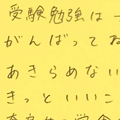 受験勉強は
がんばってお
あきらめない
きっといいこ